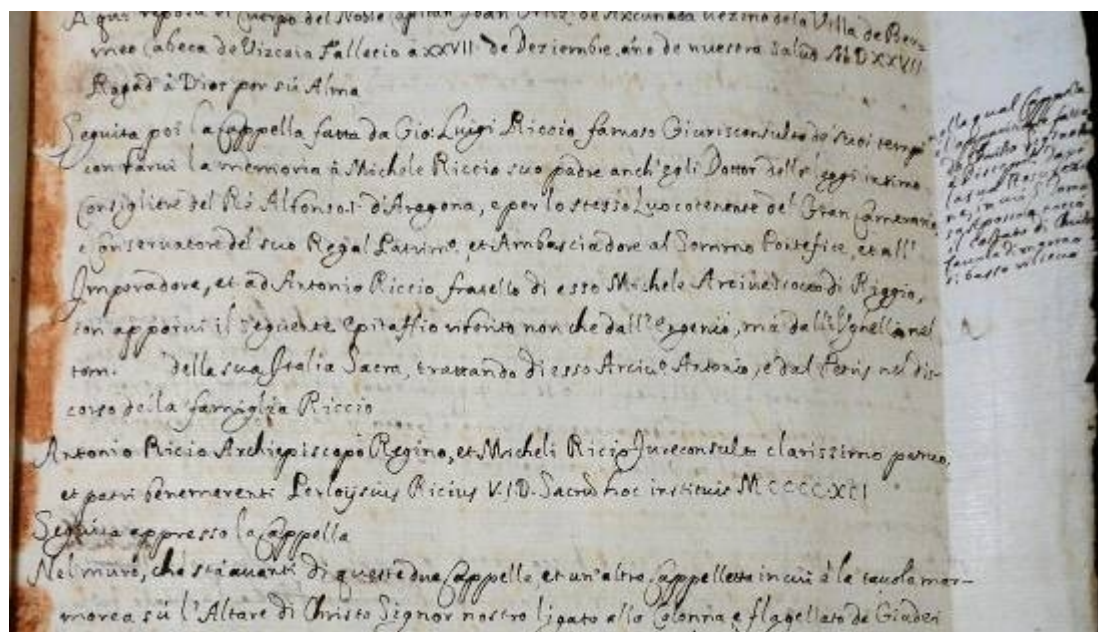 A qui reposa el Cuerpo del Noble Capitan Joan Ortiz de uezino dela Villa de Ber=
meo Cabeca de Vizcaia Fallecio a XXVII de Deziembre año de nuestra Salud MDXXVII
Rogad à Dios por sù Alma
Seguita poi la Cappella fatta da Gio: Luigi Riccio famoso Giurisconsulto de suoi tempi
con farui la memoria à Michele Riccio suo padre anch'egli Dottor delle leggi intimo
Consigliere del Rè Alfonso I d'Aragona, e per lo stesso Luocotenente del Gran Camerario
e Conseruatore del suo Regal Patrimo, et Ambasciadore al Sommo Pontefice, et all'
Imperadore, et ad Antonio Riccio fratello di esso Michele Arciuescouo di Riggio,
con apporui il seguente epitaffio riferito non che dall'Engenio, mà dall'Vghelli nel
tom. della sua Italia Sacra, trattando di esso Arciuo Antonio, e dal Petris nel dis-
corso della famiglia Riccio
Antonio Ricio Archiepiscopo Regino, et Micheli Ricio Jureconsulto clarissimo patruo,
et patri benemerenti Perloysius Ricius V.I.D. Sacrū hoc instituit MCCCCXCI
Seguita appresso la Cappella
Nel muro, che stà auanti di queste due Cappelle et un'altra Cappelletta in cui è la tauola mar-
morea sù l'Altare di Christo Signor nostro ligato alla Colonna e flagellato da Giudei
nella qual Cappella
fatta
di Christo
e Discepoli dopo
la sua Resurezzione
ne, in cui S. Tomaso
il Costato di Christo
tauola di marmo
di basso rilieuo